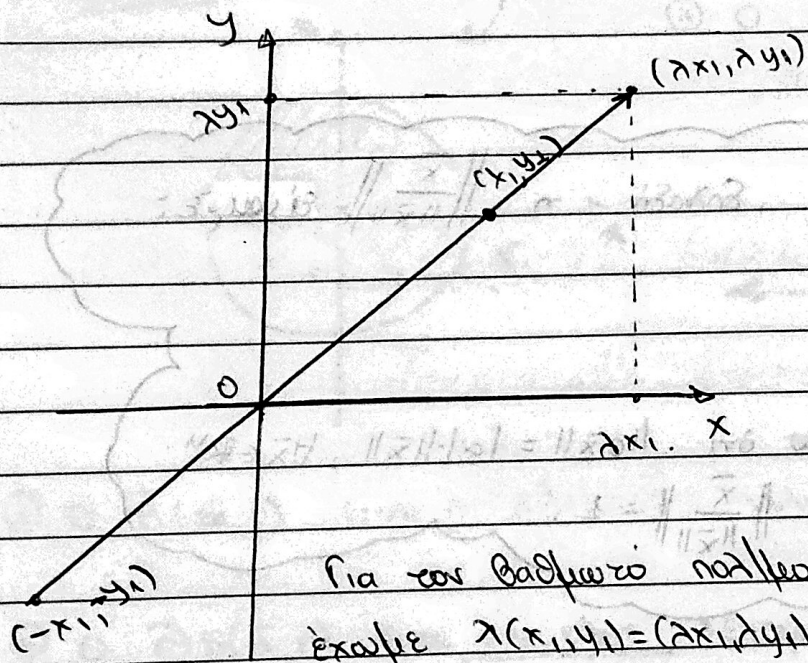 y
(λx₁, λy₁)
λy₁
(x₁, y₁)
O
λx₁.
x
(-x₁, -y₁)
Για τον βαθμωτό πολ/μο
έχουμε λ(x₁, y₁) = (λx₁, λy₁)